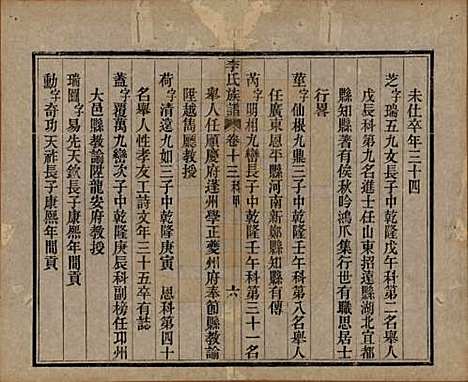 未仕卒年三十四
芝字瑞五九文長子中乾隆戊午科第二名舉人
戊辰科第九名進士任山東招遠縣湖北宜都
縣知縣著有俟秋吟鴻爪集行世有職思居士
行畧
葟字仙根九鼎三子中乾隆壬午科第八名舉人
任廣東恩平縣河南新鄭縣知縣有傳
芮字明相九巒長子中乾隆壬午科第三十一名
李氏族譜 卷十三 科甲 六
舉人任順慶府蓬州學正夔州府奉節縣教諭
陞越嶲廳教授
荷字清遠九如三子中乾隆庚寅 恩科第四十
名舉人性孝友工詩文年三十五卒有誌
蓋字覆萬九巒次子中乾隆庚辰科副榜任邛州
大邑縣教諭陞龍安府教授
瑞圖字易先天欽長子康熙年間貢
動字奇功天祚長子康熙年間貢